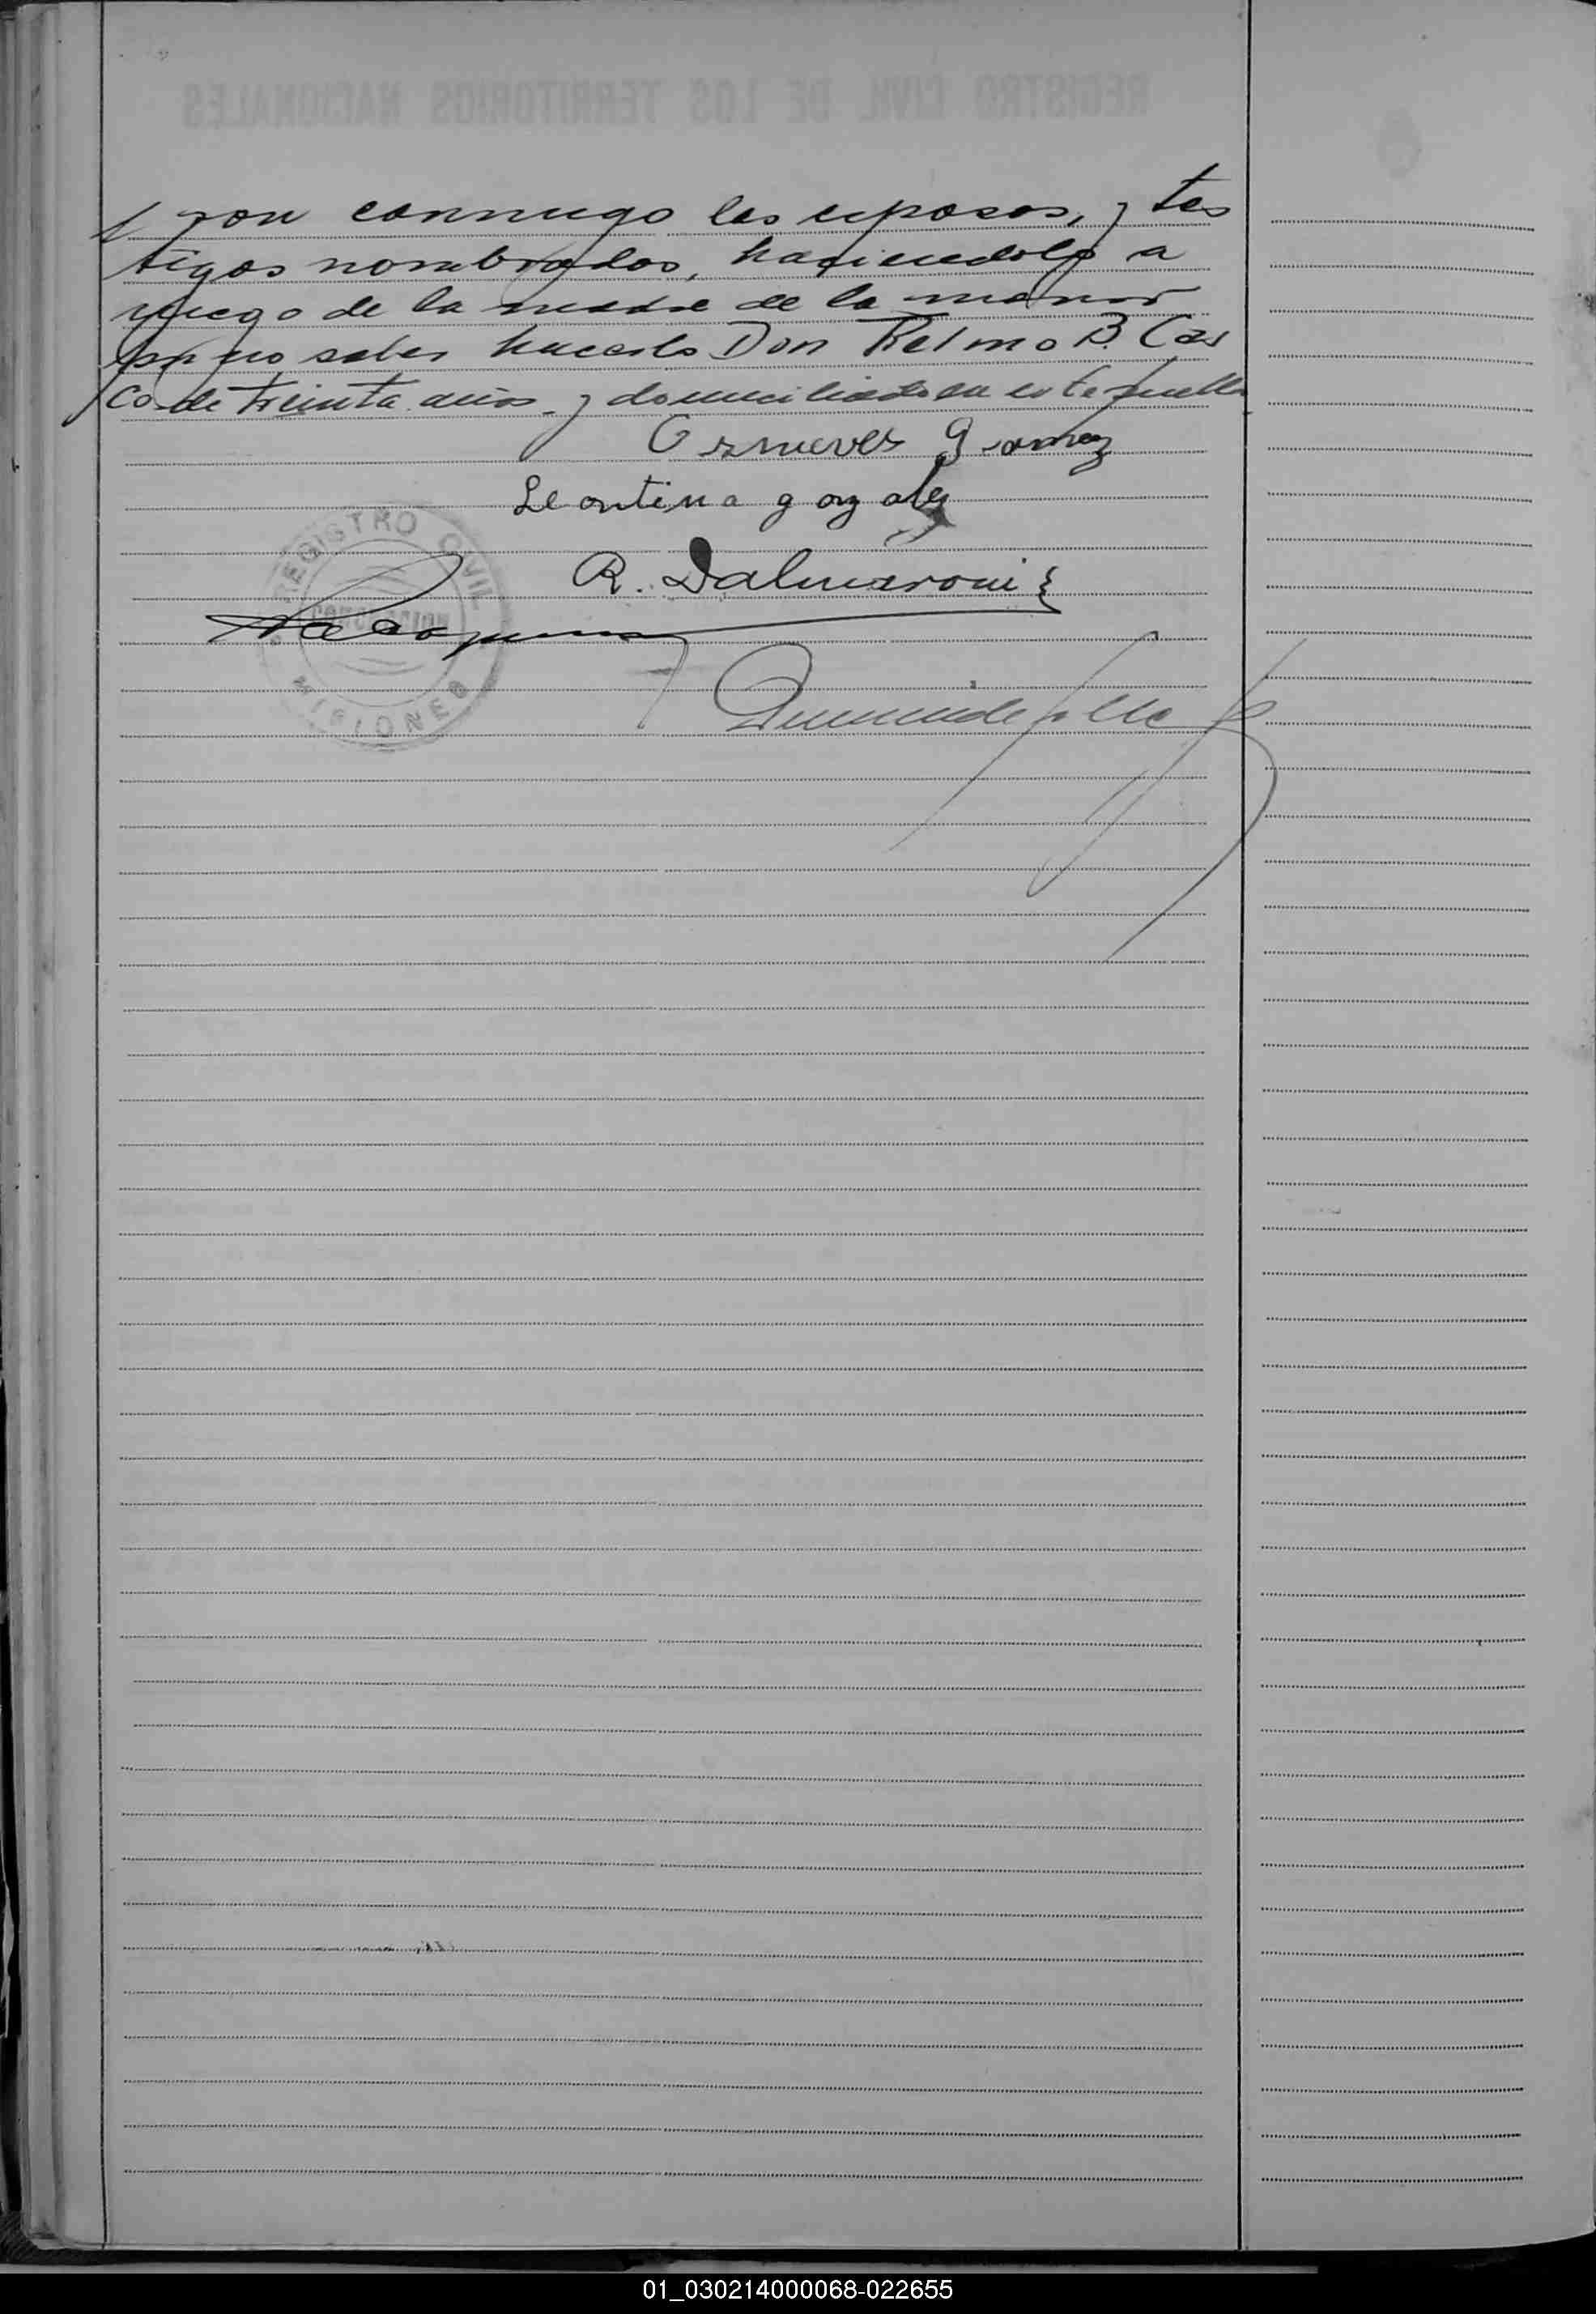 REGISTRO CIVIL DE LOS TERRITORIOS NACIONALES
ron conmigo los esposos, y tes
tigos nombrados, haciendolo a
ruego de la madre de la menor
por no saber hacerlo Don Telmo B. Cas
co de treinta años y domiciliado en este pueblo
Gomez
Leontina gozalez
R. Dalmaroni
REGISTRO CIVIL
CONCEPCION
MISIONES
01_030214000068-022655